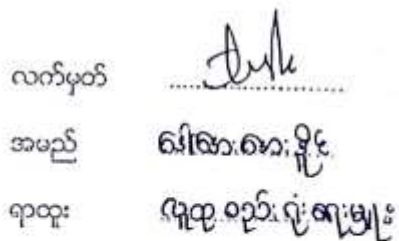 လက်မှတ်
အမည် ဒေါ်လားလားဒိူင်
ရာထူး လူထု စည်းရုံးရေးမှူး